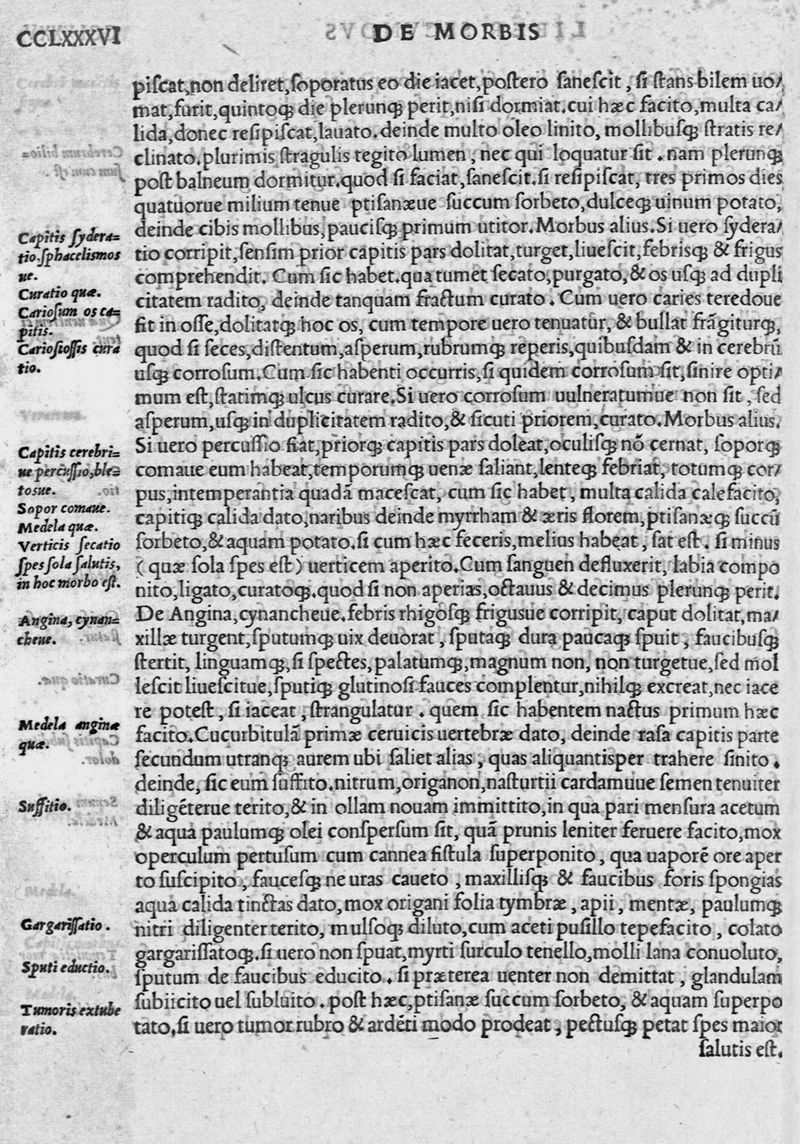 CCLXXXVI
DE MORBIS
piſcat,non deliret,ſoporatus eo die iacet,poſtero ſaneſcit, ſi ſtans bilem uo/
mat,furit,quintoqꝫ die plerunqꝫ perit,niſi dormiat.cui hæc facito,multa ca/
lida,donec reſipiſcat,lauato.deinde multo oleo linito, mollibuſqꝫ ſtratis re/
clinato.plurimis ſtragulis tegito lumen, nec qui loquatur ſit. nam plerunqꝫ
poſt balneum dormitur.quod ſi faciat,ſaneſcit.ſi reſipiſcat, tres primos dies
quatuorue milium tenue ptiſanæue ſuccum ſorbeto,dulceqꝫ uinum potato,
deinde cibis mollibus,pauciſqꝫ primum utitor. Morbus alius.Si uero ſydera/
tio corripit,ſenſim prior capitis pars dolitat,turget,liueſcit,febriſqꝫ & frigus
comprehendit. Cum ſic habet.qua tumet ſecato,purgato,& os uſqꝫ ad dupli
citatem radito, deinde tanquam fractum curato. Cum uero caries teredoue
fit in oſſe,dolitatqꝫ hoc os, cum tempore uero tenuatur, & bullat frãgiturqꝫ,
quod ſi ſeces,diſtentum,aſperum,rubrumqꝫ reperis,quibuſdam & in cerebrũ
uſqꝫ corroſum.Cum ſic habenti occurris,ſi quidem corroſum ſit,ſinire opti/
mum eſt,ſtatimqꝫ ulcus curare.Si uero corroſum uulneratumue non ſit, ſed
aſperum,uſqꝫ in duplicitatem radito,& ſicuti priorem,curato.Morbus alius.
Si uero percuſſio fiat,priorqꝫ capitis pars doleat,oculiſqꝫ nõ cernat, ſoporqꝫ
comaue eum habeat,temporumqꝫ uenæ ſaliant,lenteqꝫ febriat, totumqꝫ cor/
pus,intemperantia quadã maceſcat, cum ſic habet, multa calida calefacito,
capitiqꝫ calida dato,naribus deinde myrrham & æris florem,ptiſanæqꝫ ſuccũ
ſorbeto,& aquam potato.ſi cum hæc feceris,melius habeat, ſat eſt. ſi minus
(quæ ſola ſpes eſt) uerticem aperito.Cum ſanguen defluxerit, labia compo
nito,ligato,curatoqꝫ.quod ſi non aperias,octauus & decimus plerunqꝫ perit.
De Angina,cynancheue.febris rhigoſqꝫ frigusue corripit, caput dolitat,ma/
xillæ turgent,ſputumqꝫ uix deuorat, ſputaqꝫ dura paucaqꝫ ſpuit, faucibuſqꝫ
ſtertit, linguamqꝫ,ſi ſpectes,palatumqꝫ,magnum non, non turgetue,ſed mol
leſcit liueſcitue,ſputiqꝫ glutinoſi fauces complentur,nihilqꝫ excreat,nec iace
re poteſt, ſi iaceat, ſtrangulatur. quem ſic habentem nactus primum hæc
facito.Cucurbitulã primæ ceruicis uertebræ dato, deinde raſa capitis parte
ſecundum utranqꝫ aurem ubi ſaliet alias, quas aliquantisper trahere ſinito.
deinde, ſic eum ſuffito.nitrum,origanon,naſturtii cardamuue ſemen tenuiter
diligẽterue terito,& in ollam nouam immittito,in qua pari menſura acetum
& aqua paulumqꝫ olei conſperſum ſit, quã prunis leniter feruere facito,mox
operculum pertuſum cum cannea fiſtula ſuperponito, qua uaporẽ ore aper
to ſuſcipito, fauceſqꝫ ne uras caueto, maxilliſqꝫ & faucibus foris ſpongias
aqua calida tinctas dato,mox origani folia tymbræ, apii, mentæ, paulumqꝫ
nitri diligenter terito, mulſoqꝫ diluto,cum aceti puſillo tepefacito, colato
gargariſſatoqꝫ.ſi uero non ſpuat,myrti ſurculo tenello,molli lana conuoluto,
ſputum de faucibus educito. ſi præterea uenter non demittat, glandulam
ſubiicito uel ſubluito. poſt hæc,ptiſanæ ſuccum ſorbeto, & aquam ſuperpo
tato,ſi uero tumor rubro & ardẽti modo prodeat, pectuſqꝫ petat ſpes maior
ſalutis eſt.
Capitis ſydera=
tio.ſphacelismos
ue.
Curatio quæ.
Carioſum os ca=
pitis.
Carioſioſſis cura
tio.
Capitis cerebri=
ue percuſſio,ble=
tosue.
Sopor comaue.
Medela quæ.
Verticis ſecatio
ſpes ſola ſalutis,
in hoc morbo eſt.
Angina, cynan=
cheue.
Medela anginæ
quæ.
Suffitio.
Gargariſſatio.
Sputi eductio.
Tumoris extube
ratio.